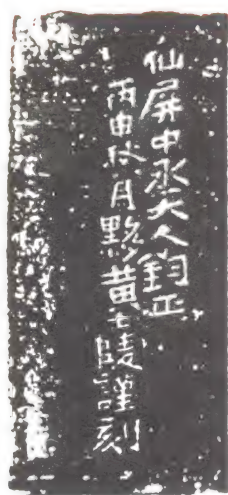 仙屏中丞大人鈞正
丙申秋月黟黄士陵謹刻